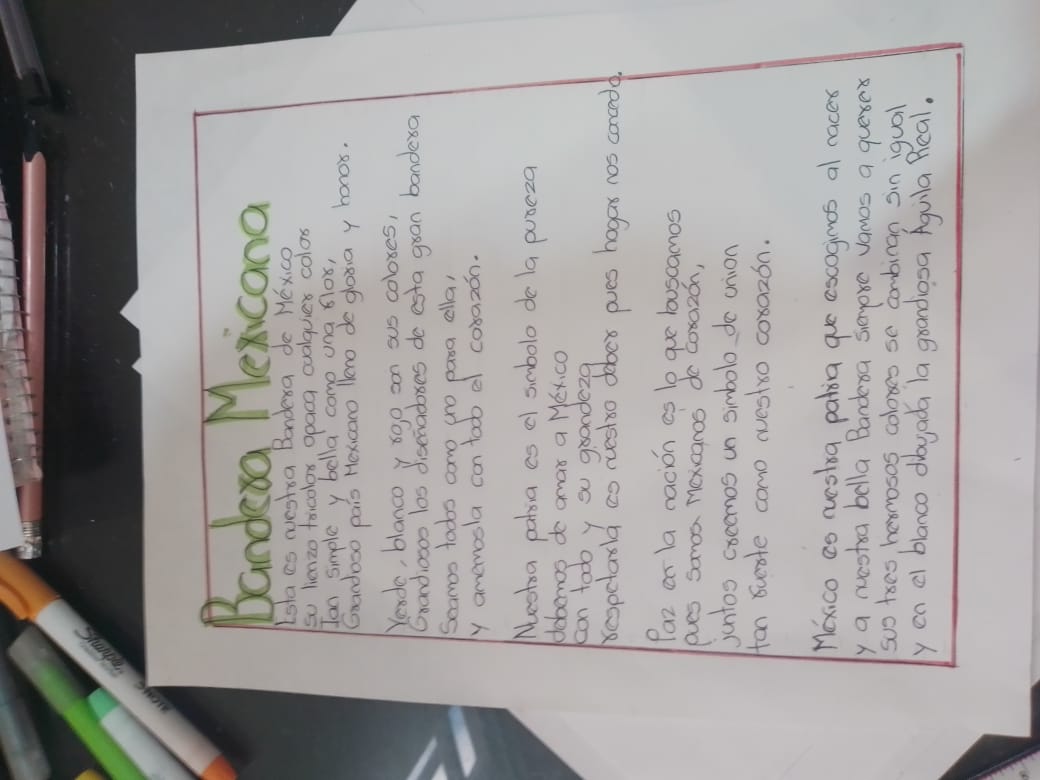 Bandera Mexicana
Esta es nuestra Bandera de México
su lienzo tricolor opaca cualquier color
Tan simple y bella como una flor,
Grandoso país Mexicano lleno de gloria y honor.
Verde, blanco y rojo son sus colores,
Grandiosos los diseñadores de esta gran bandera
Seamos todos como uno para ella,
y amemosla con todo el corazón.
Nuestra patria es el simbolo de la pureza
debemos de amar a México
con todo y su grandeza
respetarla es nuestro deber pues hogar nos concede.
Paz en la nación es lo que buscamos
pues somos Mexicanos de corazón,
juntos creemos un simbolo de union
tan fuerte como nuestro corazón.
México es nuestra patria que escogimos al nacer
y a nuestra bella Bandera siempre vamos a querer
sus tres hermosos colores se combinan sin igual
y en el blanco dibujada la grandiosa Águila Real.
Sharpie